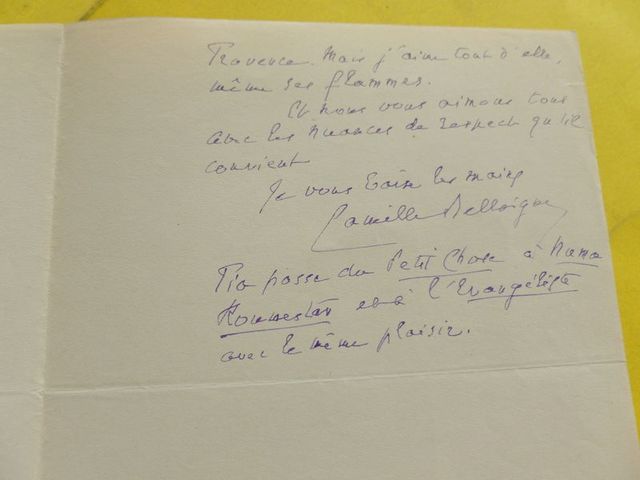 Provence. Mais j'aime tout d'elle,
même ses flammes.
Et nous vous aimons tous
avec les nuances de respect qu'il
convient
Je vous baise les mains
Camille Bellaigue
Pio passe du Petit Chose à Numa
Roumestan et à l'Evangéliste
avec le même plaisir.